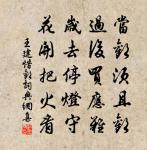 當歡須且歡
過後買應難
歲去停燈守
花開把火看
王建惜歡詞典網